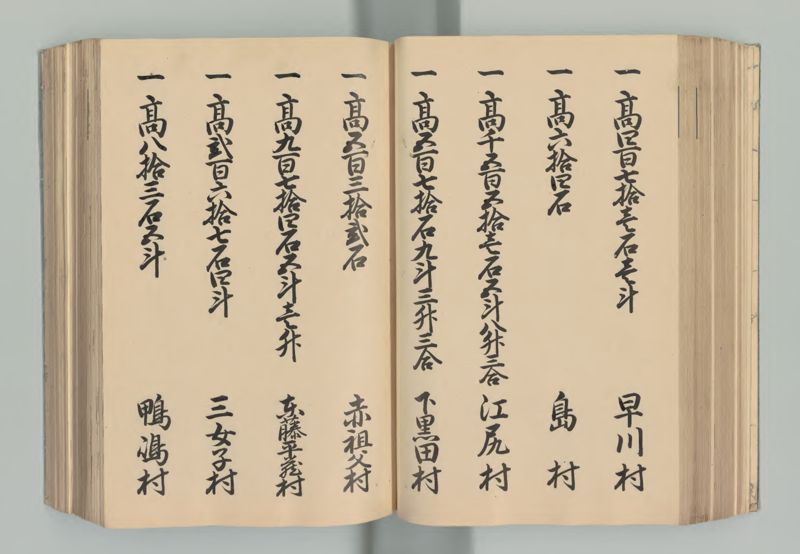 一 高四百七拾壱石壱斗 早川村
一 高六拾四石 島村
一 高千五百五拾壱石五斗八升三合 江尻村
一 高五百七拾石九斗三升三合 下黒田村
一 高五百三拾弐石 赤祖父村
一 高九百七拾四石五斗壱升 東藤平蔵村
一 高弐百六拾七石四斗 三女子村
一 高八拾三石五斗 鴨嶋村